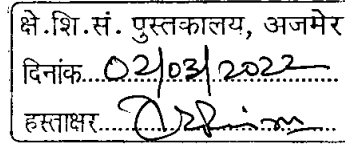 क्षे.शि.सं. पुस्तकालय, अजमेर
दिनांक...02/03/2022...
हस्ताक्षर...